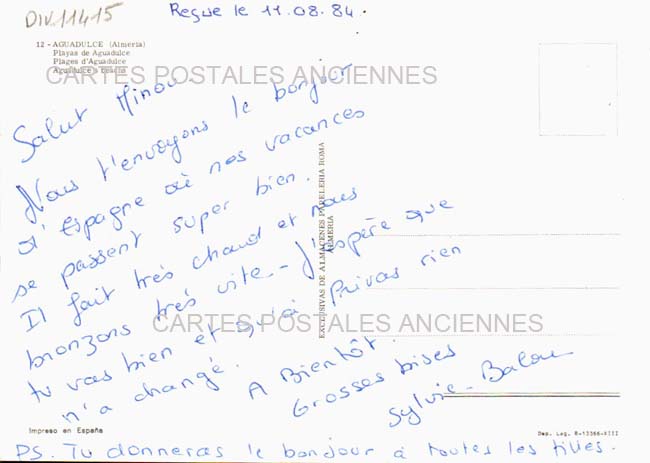 DIV11415
Reçue le 11.08.84
12 - AGUADULCE (Almería)
Playas de Aguadulce
Plages d'Aguadulce
Aguadulce's beachs
CARTES POSTALES ANCIENNES
Salut Minou.
Nous t'envoyons le bonjour
d'Espagne où nos vacances
se passent super bien.
Il fait très chaud et nous
bronzons très vite - J'espère que
tu vas bien et qu'à Privas rien
n'a changé.
A Bientôt.
Grosses bises
Sylvie - Balou
EXCLUSIVAS DE ALMACENES PAPELERIA ROMA
ALMERIA
CARTES POSTALES ANCIENNES
Impreso en España
Dep. Leg. B-13366-XIII
PS. Tu donneras le bonjour à toutes les filles.